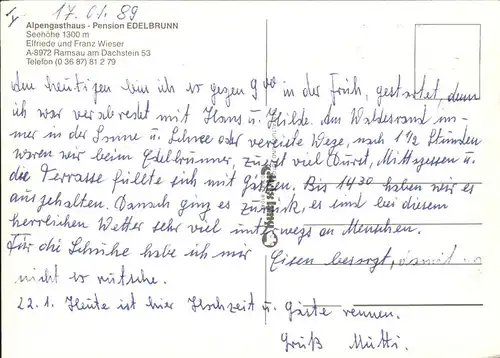 17.01.89
Alpengasthaus - Pension EDELBRUNN
Seehöhe 1300 m
Elfriede und Franz Wieser
A-8972 Ramsau am Dachstein 53
Telefon (0 36 87) 81 2 79
Am heutigen bin ich so gegen 9 00 in der Früh, gestartet, denn
ich war verabredet mit Hans u. Hilde. Am Waldesrand im-
mer in der Sonne u. Schnee oder vereiste Wege, nach 1 1/2 Stunden
waren wir beim Edelbrunner, zuerst viel Durst, Mittagessen u.
die Terrasse füllte sich mit Gästen. Bis 14 30 haben wir es
ausgehalten. Danach ging es zurück, es sind bei diesem
herrlichen Wetter sehr viel unterwegs an Menschen.
Für die Schuhe habe ich mir Eisen besorgt, damit
nicht so rutsche.
22.1. Heute ist hier Hochzeit u. Gäste rennen.
Gruß Mutti.